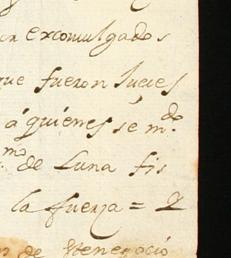 excomulgados
que fueron Jueces
á quienes se m.do
mo de Luna fis
la fuerza = Y
de Venegoció